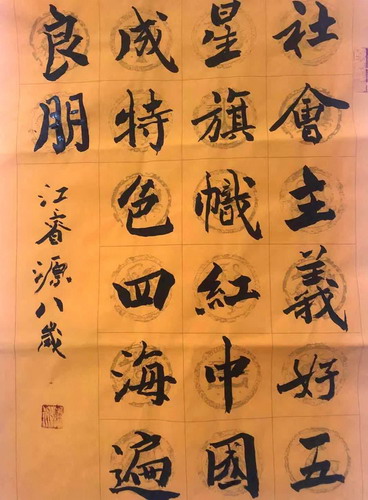 社會主義好五
星旗幟紅中國
成特色四海遍
良朋
江睿源八歲